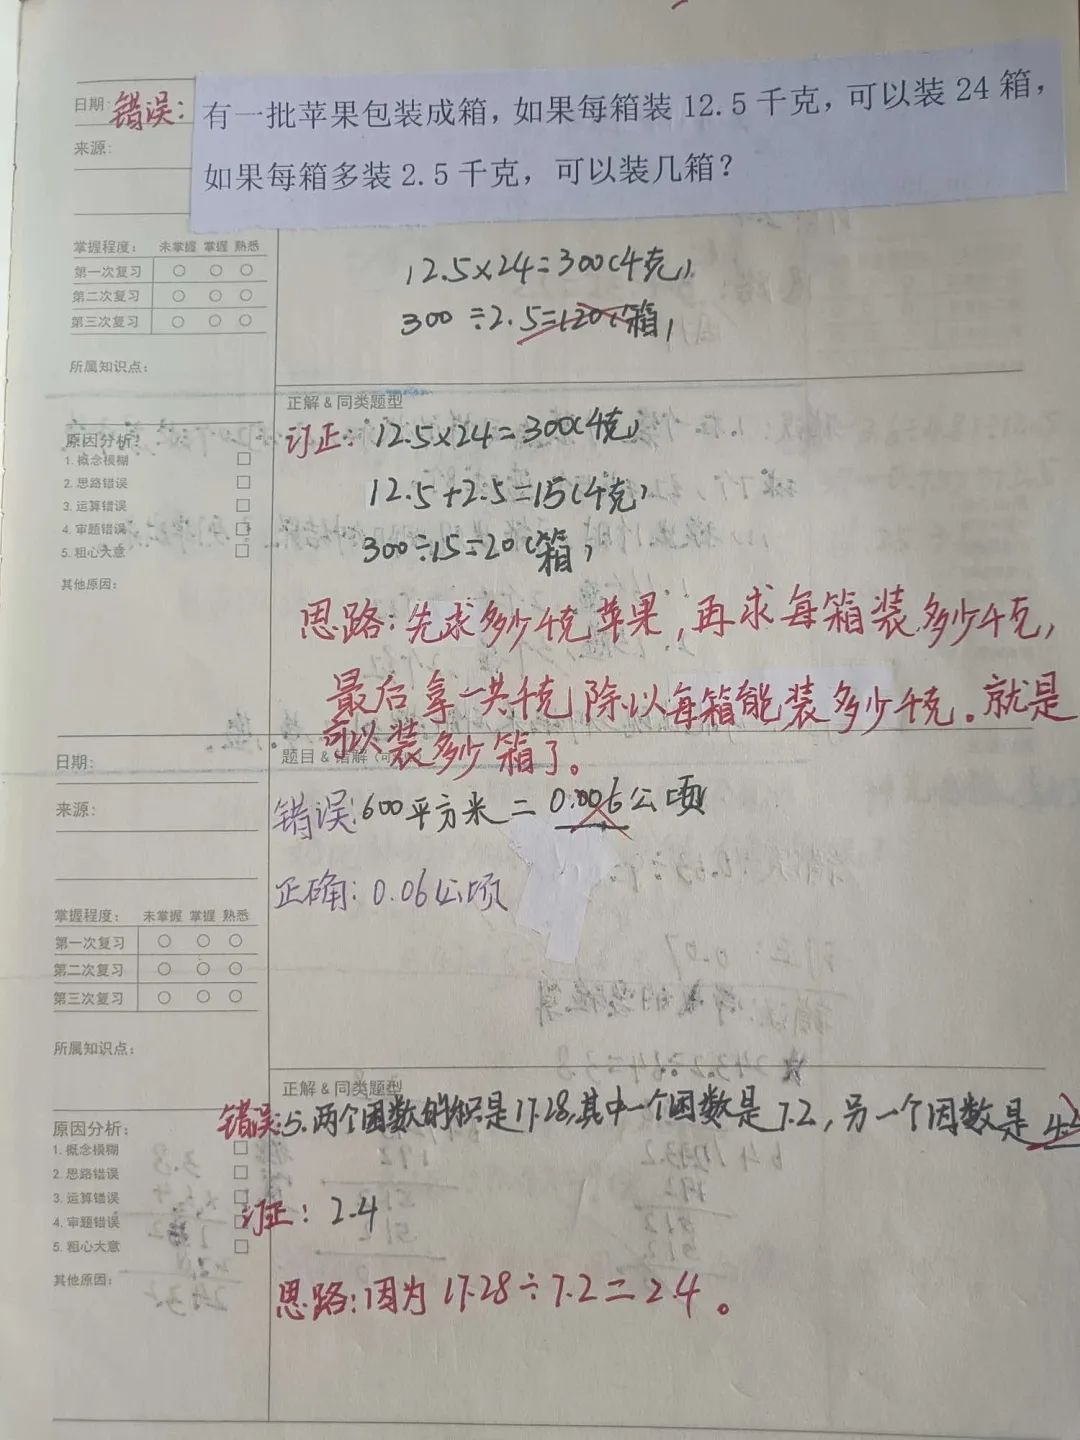 日期:
错误:
有一批苹果包装成箱，如果每箱装 12.5 千克，可以装 24 箱，
来源:
如果每箱多装 2.5 千克，可以装几箱？
掌握程度: 未掌握 掌握 熟悉
第一次复习
第二次复习
第三次复习
12.5×24=300(千克)
300÷2.5=120(箱)
所属知识点:
正解 & 同类题型
订正: 12.5×24=300(千克)
12.5+2.5=15(千克)
300÷15=20(箱)
原因分析:
1. 概念模糊
2. 思路错误
3. 运算错误
4. 审题错误
5. 粗心大意
其他原因:
思路:先求多少千克苹果,再求每箱装多少千克,
最后拿一共千克除以每箱能装多少千克。就是
可以装多少箱了。
日期:
题目 & 错解
来源:
错误:600平方米=0.006公顷
正确:0.06公顷
掌握程度: 未掌握 掌握 熟悉
第一次复习
第二次复习
第三次复习
所属知识点:
正解 & 同类题型
错误:5.两个因数的积是17.28,其中一个因数是7.2,另一个因数是
原因分析:
1. 概念模糊
2. 思路错误
3. 运算错误
4. 审题错误
5. 粗心大意
其他原因:
订正: 2.4
思路:因为17.28÷7.2=2.4。